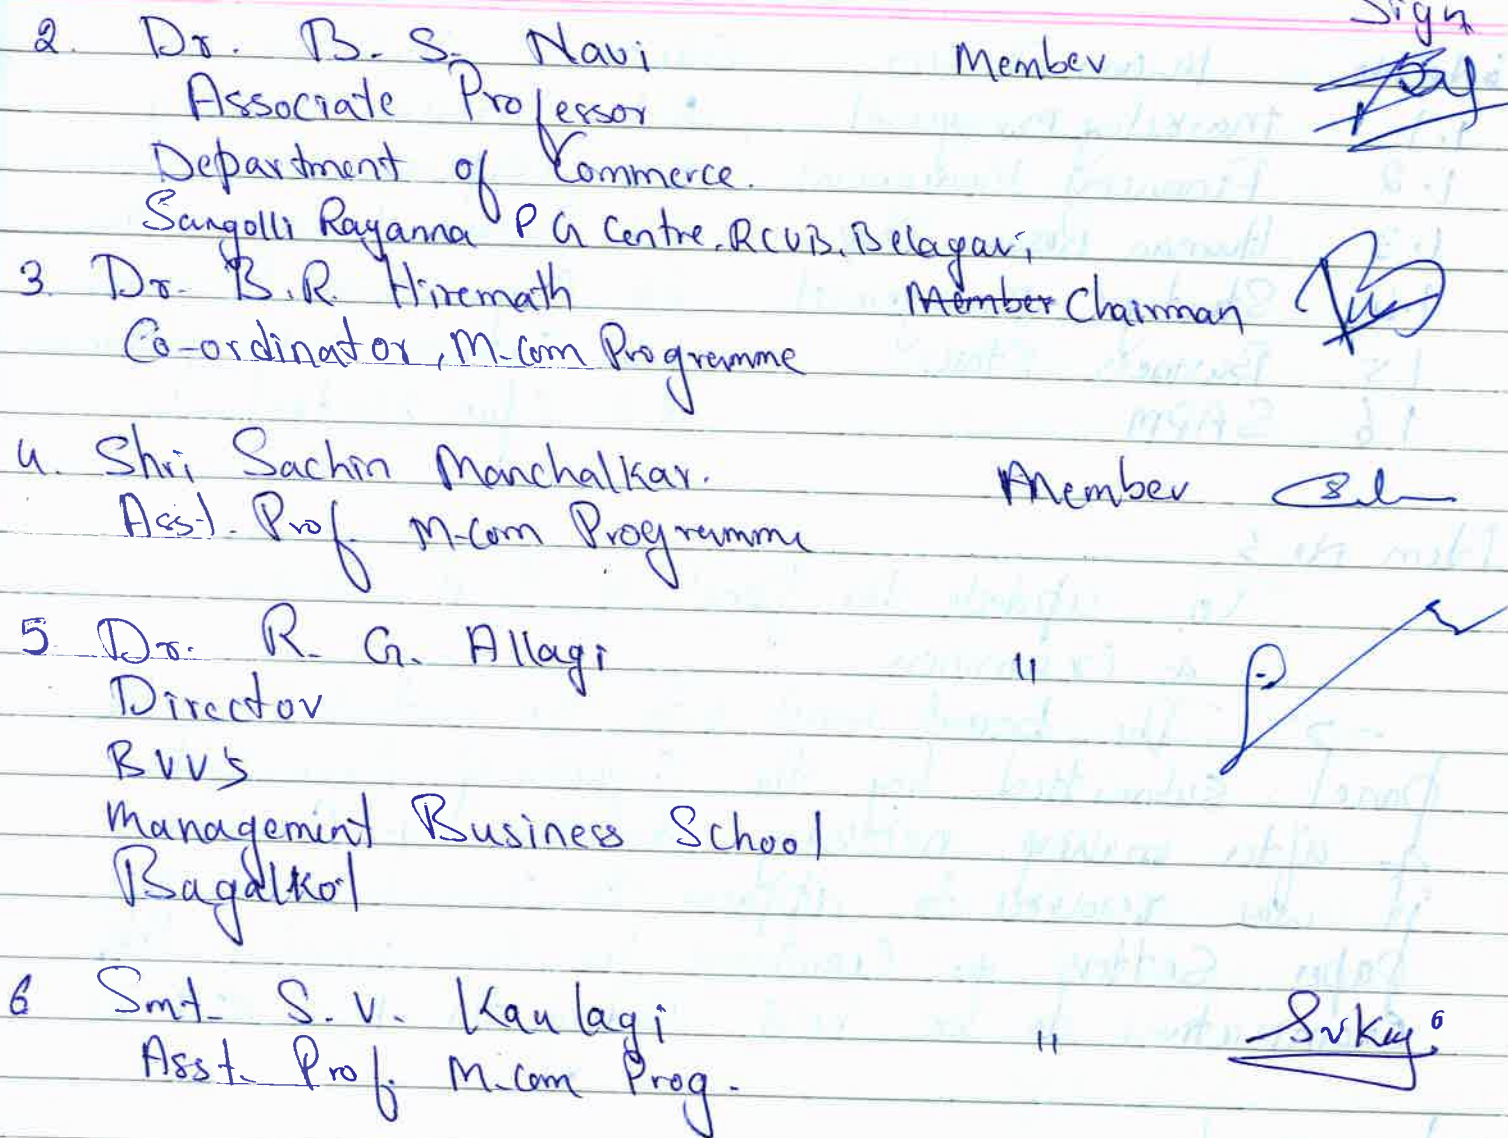 Sign
2. Dr. B. S. Navi Member
Associate Professor
Department of Commerce.
Sangolli Rayanna P G Centre, RCUB, Belagavi,
3. Dr. B. R. Hiremath Member Chairman
Co-ordinator, M-com Programme
4. Shri Sachin Manchalkar. Member
Asst. Prof. M-com Programme
5 Dr. R. G. Allagi "
Director
BVVS
Management Business School
Bagalkot
6 Smt. S. V. Kaulagi "
Asst. Prof. M-com Prog.